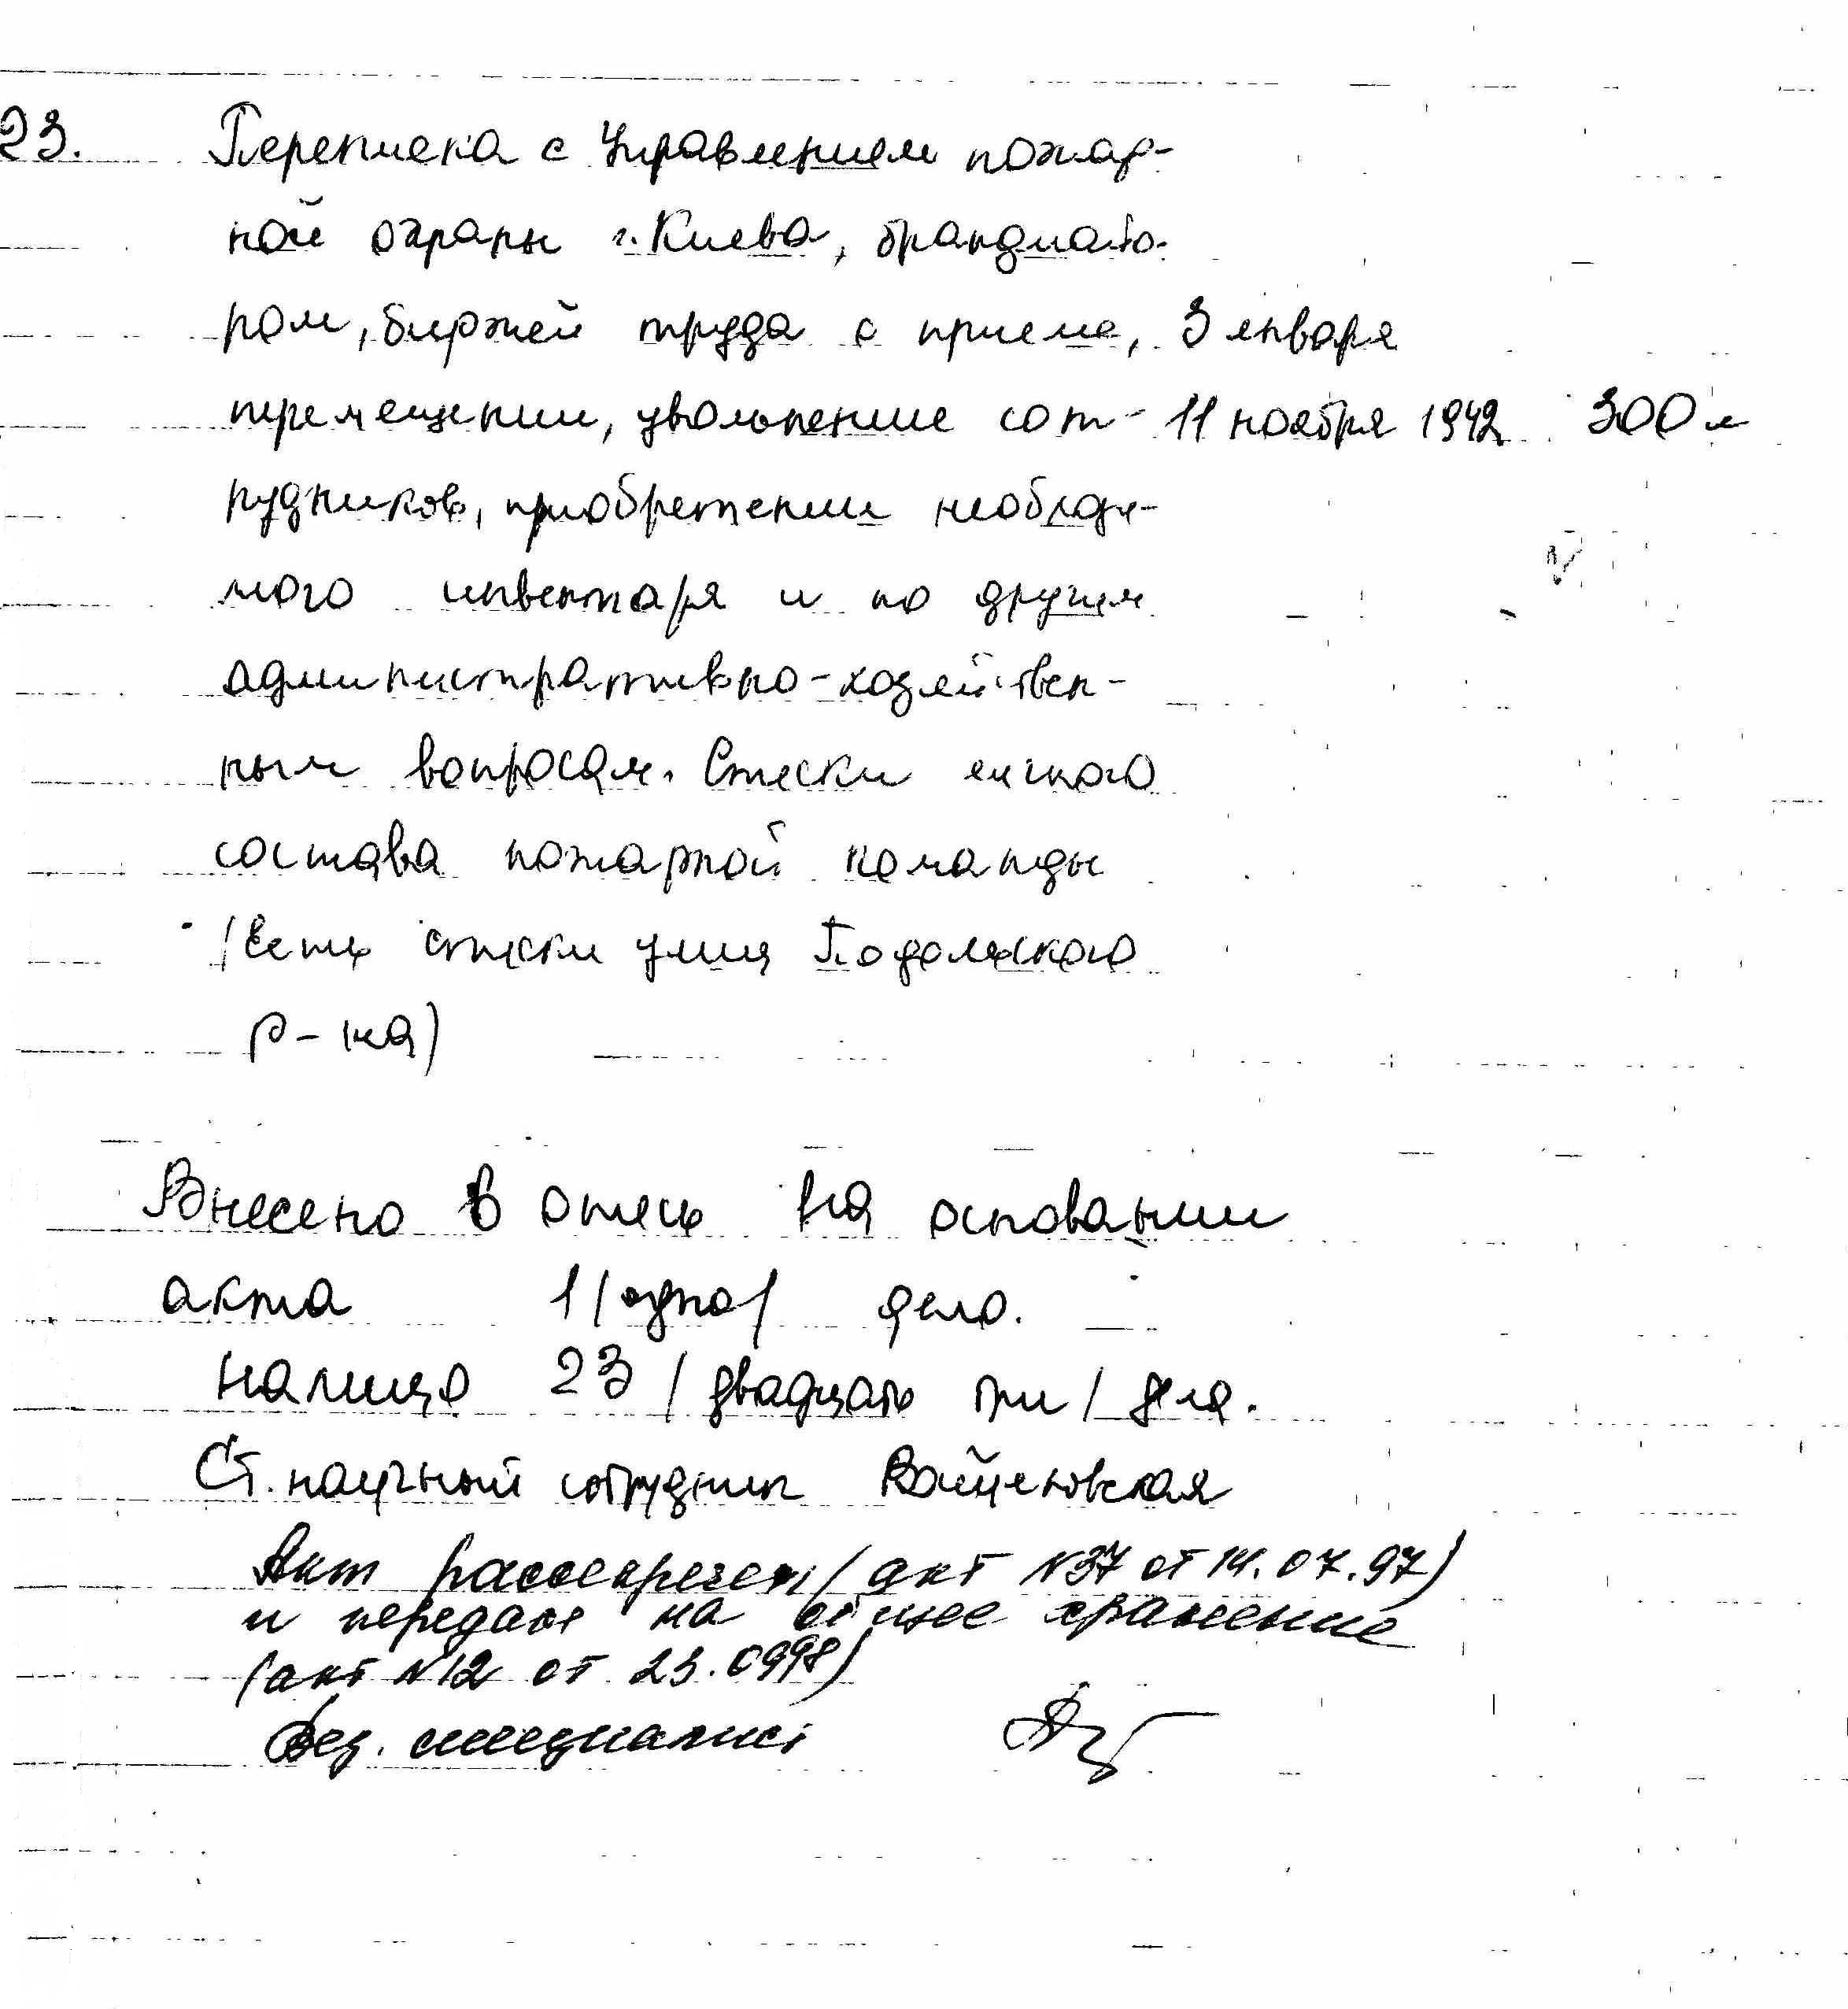 23. Переписка с Управлением пожар-
ной охраны г. Киева, брандмайо-
ром, биржей труда о приеме, 3 января
перемещении, увольнение сот- 11 ноября 1942 300 л
рудников, приобретении необходи-
мого инвентаря и по другим
административно-хозяйствен-
ным вопросам. Списки личного
состава пожарной команды
/Есть списки улиц Подольского
р-на)
Внесено в опись на основании
акта 1/одно/ дело.
налицо 23 /двадцать три/ дела.
Ст. научный сотрудник Войцеховская
рассекречен (акт N37 от 14.07.97)
и передан на общее хранение
(акт N12 от 23.0998)
Вед. специалист